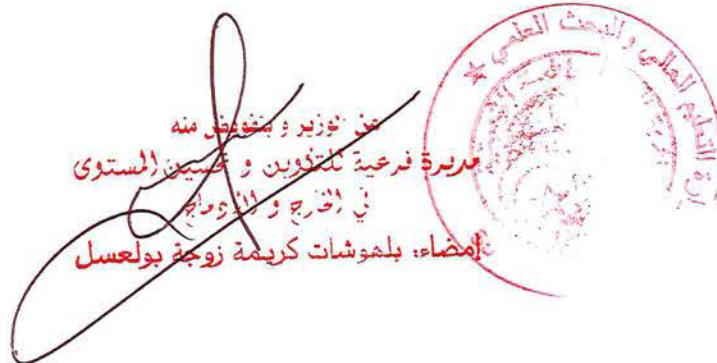 عن الوزير و بتفويض منه
مديرة فرعية للتكوين و تحسين المستوى
في الخارج و الإدماج
إمضاء: بلهوشات كريمة زوجة بولعسل
وزارة التعليم العالي والبحث العلمي